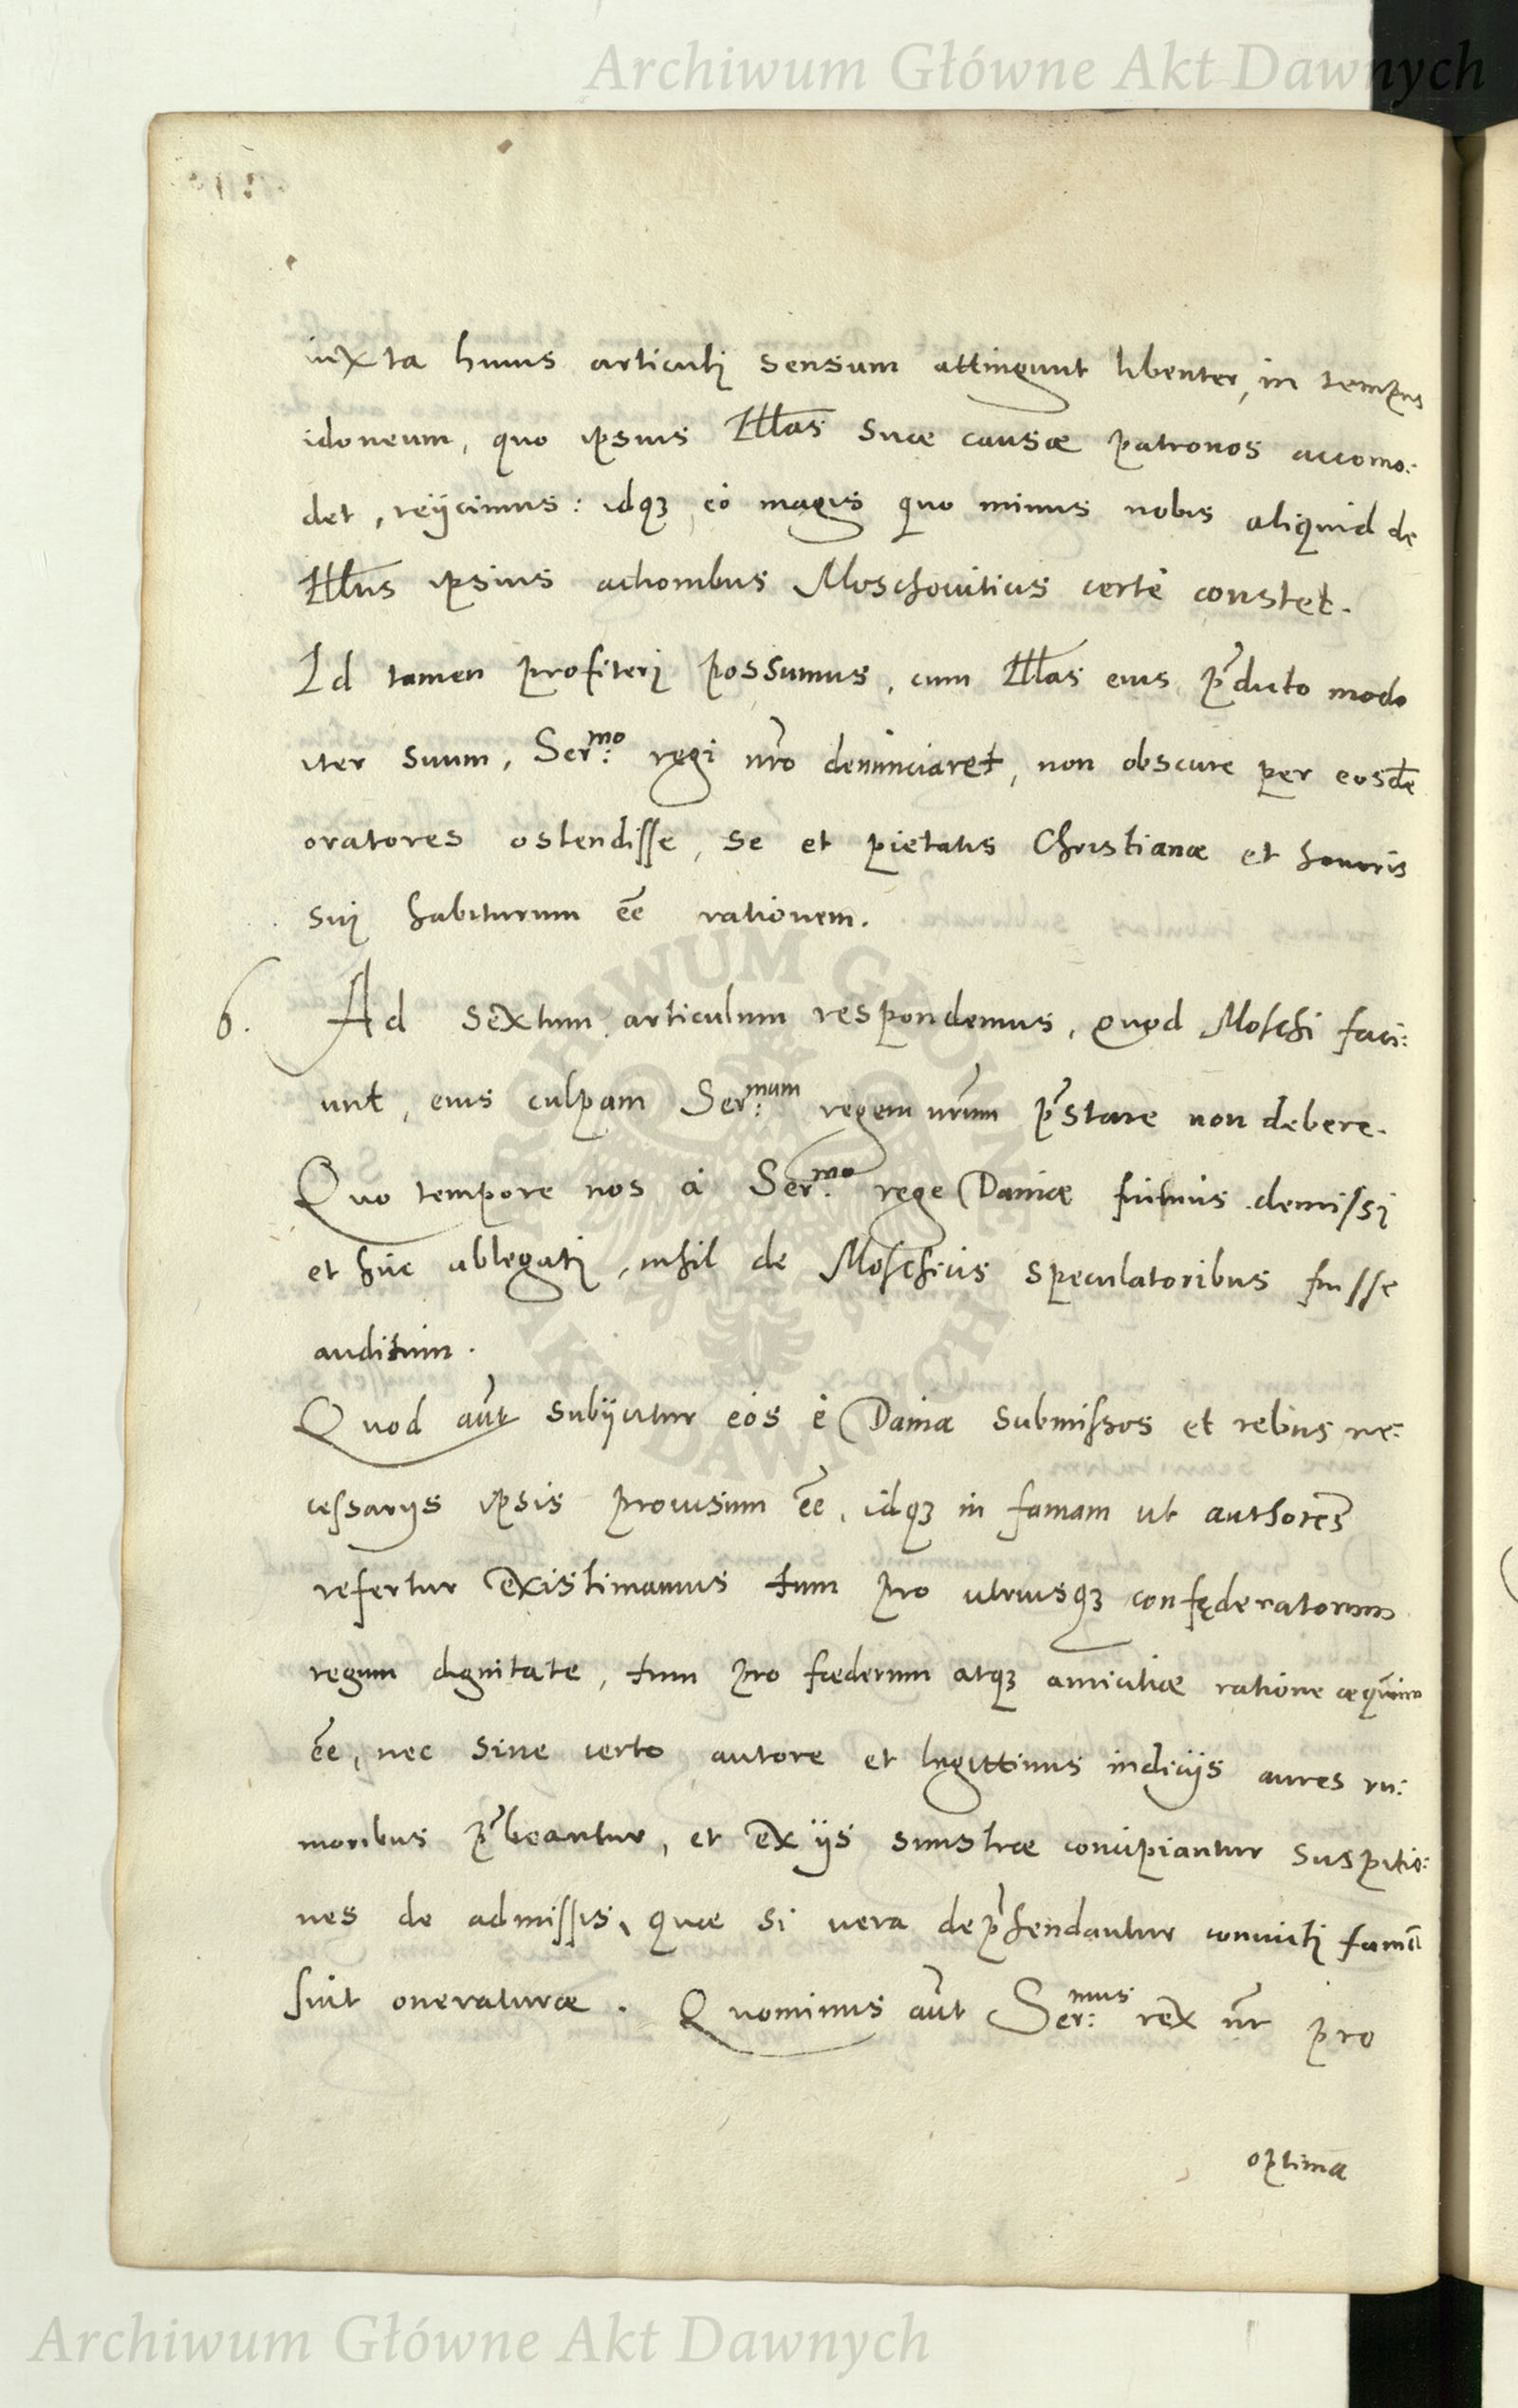 Archiwum Główne Akt Dawnych
iuxta huius articulj sensum attingunt libenter, in tempus
idoneum, quo ipsius Illtas suae causae patronos accomo:
det, reijcimus: idqꝫ eò magis quo minus nobis aliquid de
Illtis ipsius actionibus Moschouiticis certè constet.
Id tamen profiterj possumus, cum Illtas eius p̄dicto modo
iter suum, Ser:mo regi nr̄o denunciaret, non obscure per eosdē
oratores ostendisse, se et pietatis Christianae et honoris
suj habiturum eē rationem.
6. Ad sextum articulum respondemus, quod Moschi faci:
unt, eius culpam Ser:mum regem nr̄um p̄stare non debere.
Quo tempore nos à Ser:mo rege Daniae fuimus demissj
et hùc ablegatj, nihil de Moschicis speculatoribus fuisse
auditum.
Quod aūt subijcitur eos è Dania submissos et rebus ne:
cessarijs ipsis prouisum eē, idqꝫ in famam ut authorem
refertur existimamus tum pro utriusqꝫ confęderatorum
regum dignitate, tum pro foederum atqꝫ amicitiae ratione aequū
eē, nec sine certo autore et legittimis indicijs aures ru:
moribus p̄beantur, et ex ijs sinistrae concipiantur suspitio:
nes de admissis, quae si uera dep̄hendantur conuictj famā
sint oneraturae. Quominus aūt Ser:mus rex nr̄ pro
optima
ARCHIWUM GŁÓWNE
AKT DAWNYCH
Archiwum Główne Akt Dawnych